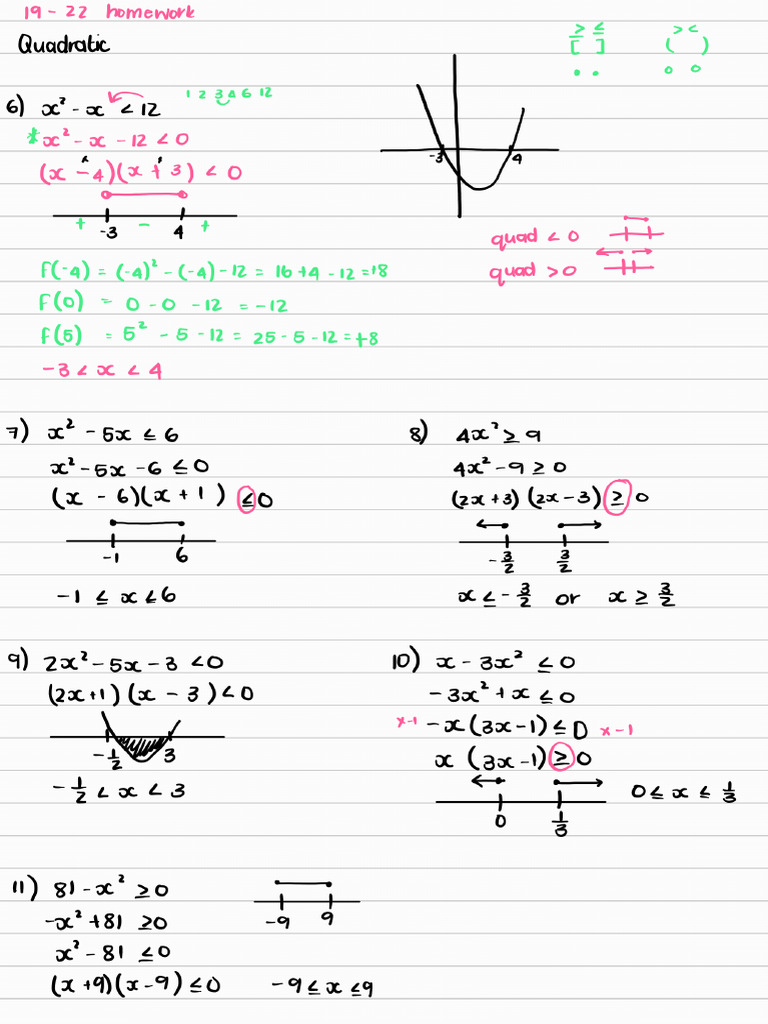 19 - 22 homework
Quadratic
≥ ≤
[ ]
> <
( )
6) x² - x < 12
1 2 3 4 6 12
* x² - x - 12 < 0
(x - 4)(x + 3) < 0
-3 4
+ - +
-3 4
quad < 0
quad > 0
f(-4) = (-4)² - (-4) - 12 = 16 + 4 - 12 = +8
f(0) = 0 - 0 - 12 = -12
f(5) = 5² - 5 - 12 = 25 - 5 - 12 = +8
-3 < x < 4
7) x² - 5x ≤ 6
x² - 5x - 6 ≤ 0
(x - 6)(x + 1) ≤ 0
-1 6
-1 ≤ x ≤ 6
8) 4x² ≥ 9
4x² - 9 ≥ 0
(2x + 3)(2x - 3) ≥ 0
-3/2 3/2
x ≤ -3/2 or x ≥ 3/2
9) 2x² - 5x - 3 < 0
(2x + 1)(x - 3) < 0
-1/2 3
-1/2 < x < 3
10) x - 3x² ≤ 0
-3x² + x ≤ 0
x-1 -x(3x - 1) ≤ 0 x-1
x(3x - 1) ≥ 0
0 1/3
0 ≤ x ≤ 1/3
11) 81 - x² ≥ 0
-x² + 81 ≥ 0
x² - 81 ≤ 0
(x + 9)(x - 9) ≤ 0
-9 9
-9 ≤ x ≤ 9